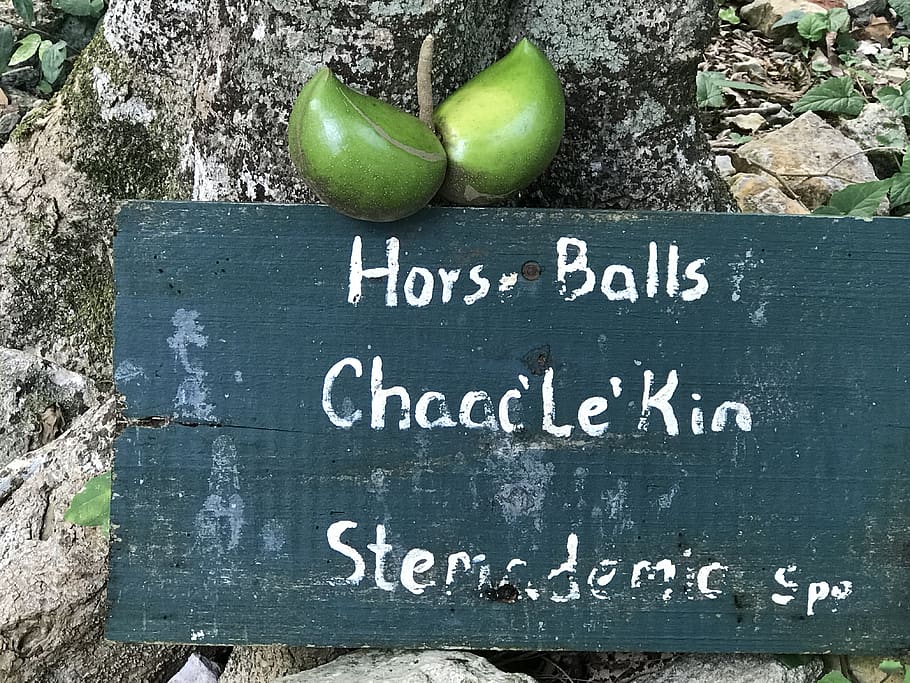 Horse Balls
Chaac'Le'Kin
Stemademic Spp